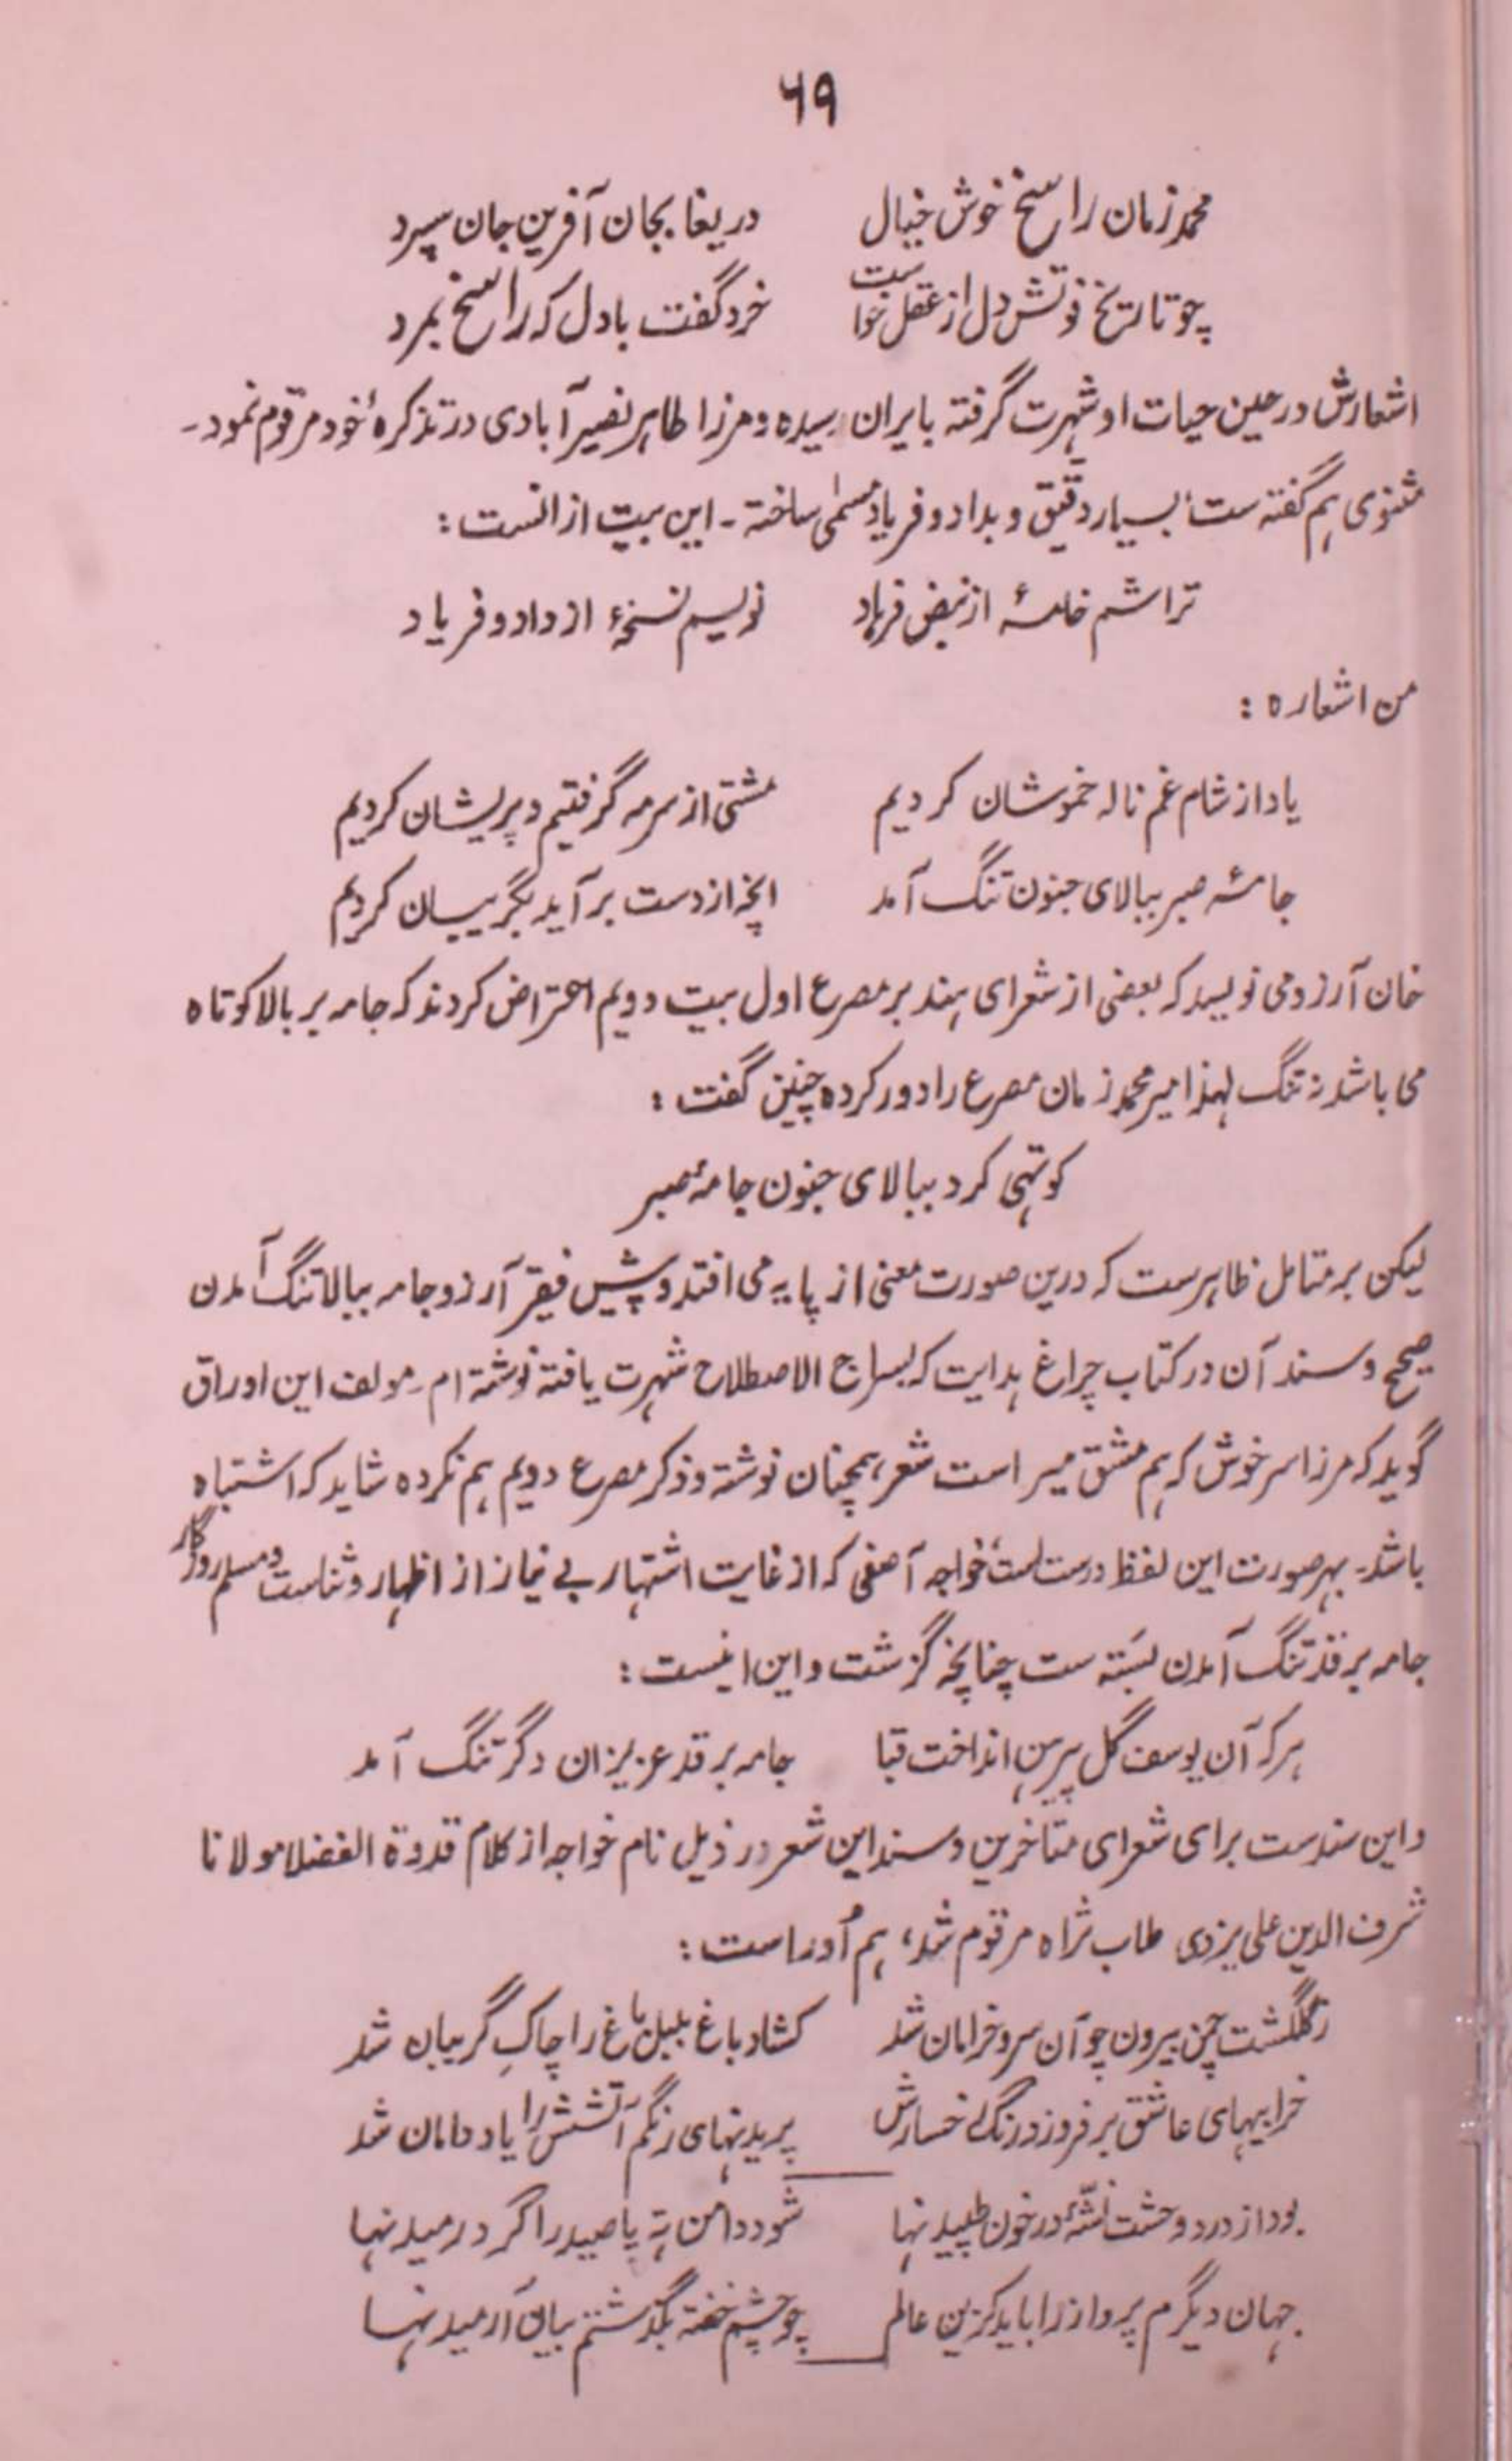 ۶۹
محمد زمان راسخ خوش خیال دریغا بجان آفرین جان سپرد
چو تاریخ فوتش دل از عقل خواست خرد گفت با دل که راسخ بمرد
اشعارش در عین حیات او شهرت گرفته بایران رسیده و مرزا طاهر نصیرآبادی در تذکرهٔ خود مرقوم نمود۔
مثنوی هم گفته ست٬ بسیار دقیق و بداد و فریاد مسمٰی ساخته ۔ این بیت ازانست :
تراشم خامهٔ از نبض فرهاد نویسم نسخهٔ از داد و فریاد
من اشعاره :
یاد از شام غم ناله خموشان کردیم مشتی از سرمه گرفتیم و پریشان کردیم
جامهٔ صبر ببالای جنون تنگ آمد انچه از دست برآید بگریبان کردیم
خان آرزو می نویسد که بعضی از شعرای هند بر مصرع اول بیت دویم اعتراض کردند که جامه بر بالا کوتاه
می باشد نه تنگ لهذا میر محمد زمان مصرع را دور کرده چنین گفت :
کوتهی کرد ببالای جنون جامهٔ صبر
لیکن بر متامل ظاهرست که درین صورت معنی از پایه می افتد و پیش فقیر آرزو جامه ببالا تنگ آمدن
صحیح و سند آن در کتاب چراغ هدایت که بسراج الاصطلاح شهرت یافته نوشته ام ۔ مولف این اوراق
گوید که مرزا سرخوش که هم مشق میر است شعر همچنان نوشته و ذکر مصرع دویم هم نکرده شاید که اشتباه
باشد۔ بهر صورت این لفظ درست ست٬ خواجه آصفی که از غایت اشتهار بے نیاز از اظهار و ثناست و مسلم روزگار
جامه بر قد تنگ آمدن بسته ست چنانچه گزشت و این اینست :
هر که آن یوسف گل پیرهن انداخت قبا جامه بر قد عزیزان دگر تنگ آمد
و این سندست برای شعرای متاخرین و سند این شعر در ذیل نام خواجه از کلام قدوة الفضلا مولانا
شرف الدین علی یزدی طاب ثراه مرقوم شد، هم اُوراست :
ز گلگشت چمن بیرون چو آن سرو خرامان شد کشاد باغ بلبل باغ را چاکِ گریبان شد
خرابیهای عاشق بر فروزد رنگ رخسارش پریدنهای رنگم آتشش را یاد دامان شد
بود از درد وحشت نشّهٔ در خون طپیدنها شود دامن ته پا صید را گرد رمیدنها
جهان دیگرم پرواز را باید کزین عالم چو چشم خفته بگذشتم ببال آرمیدنها